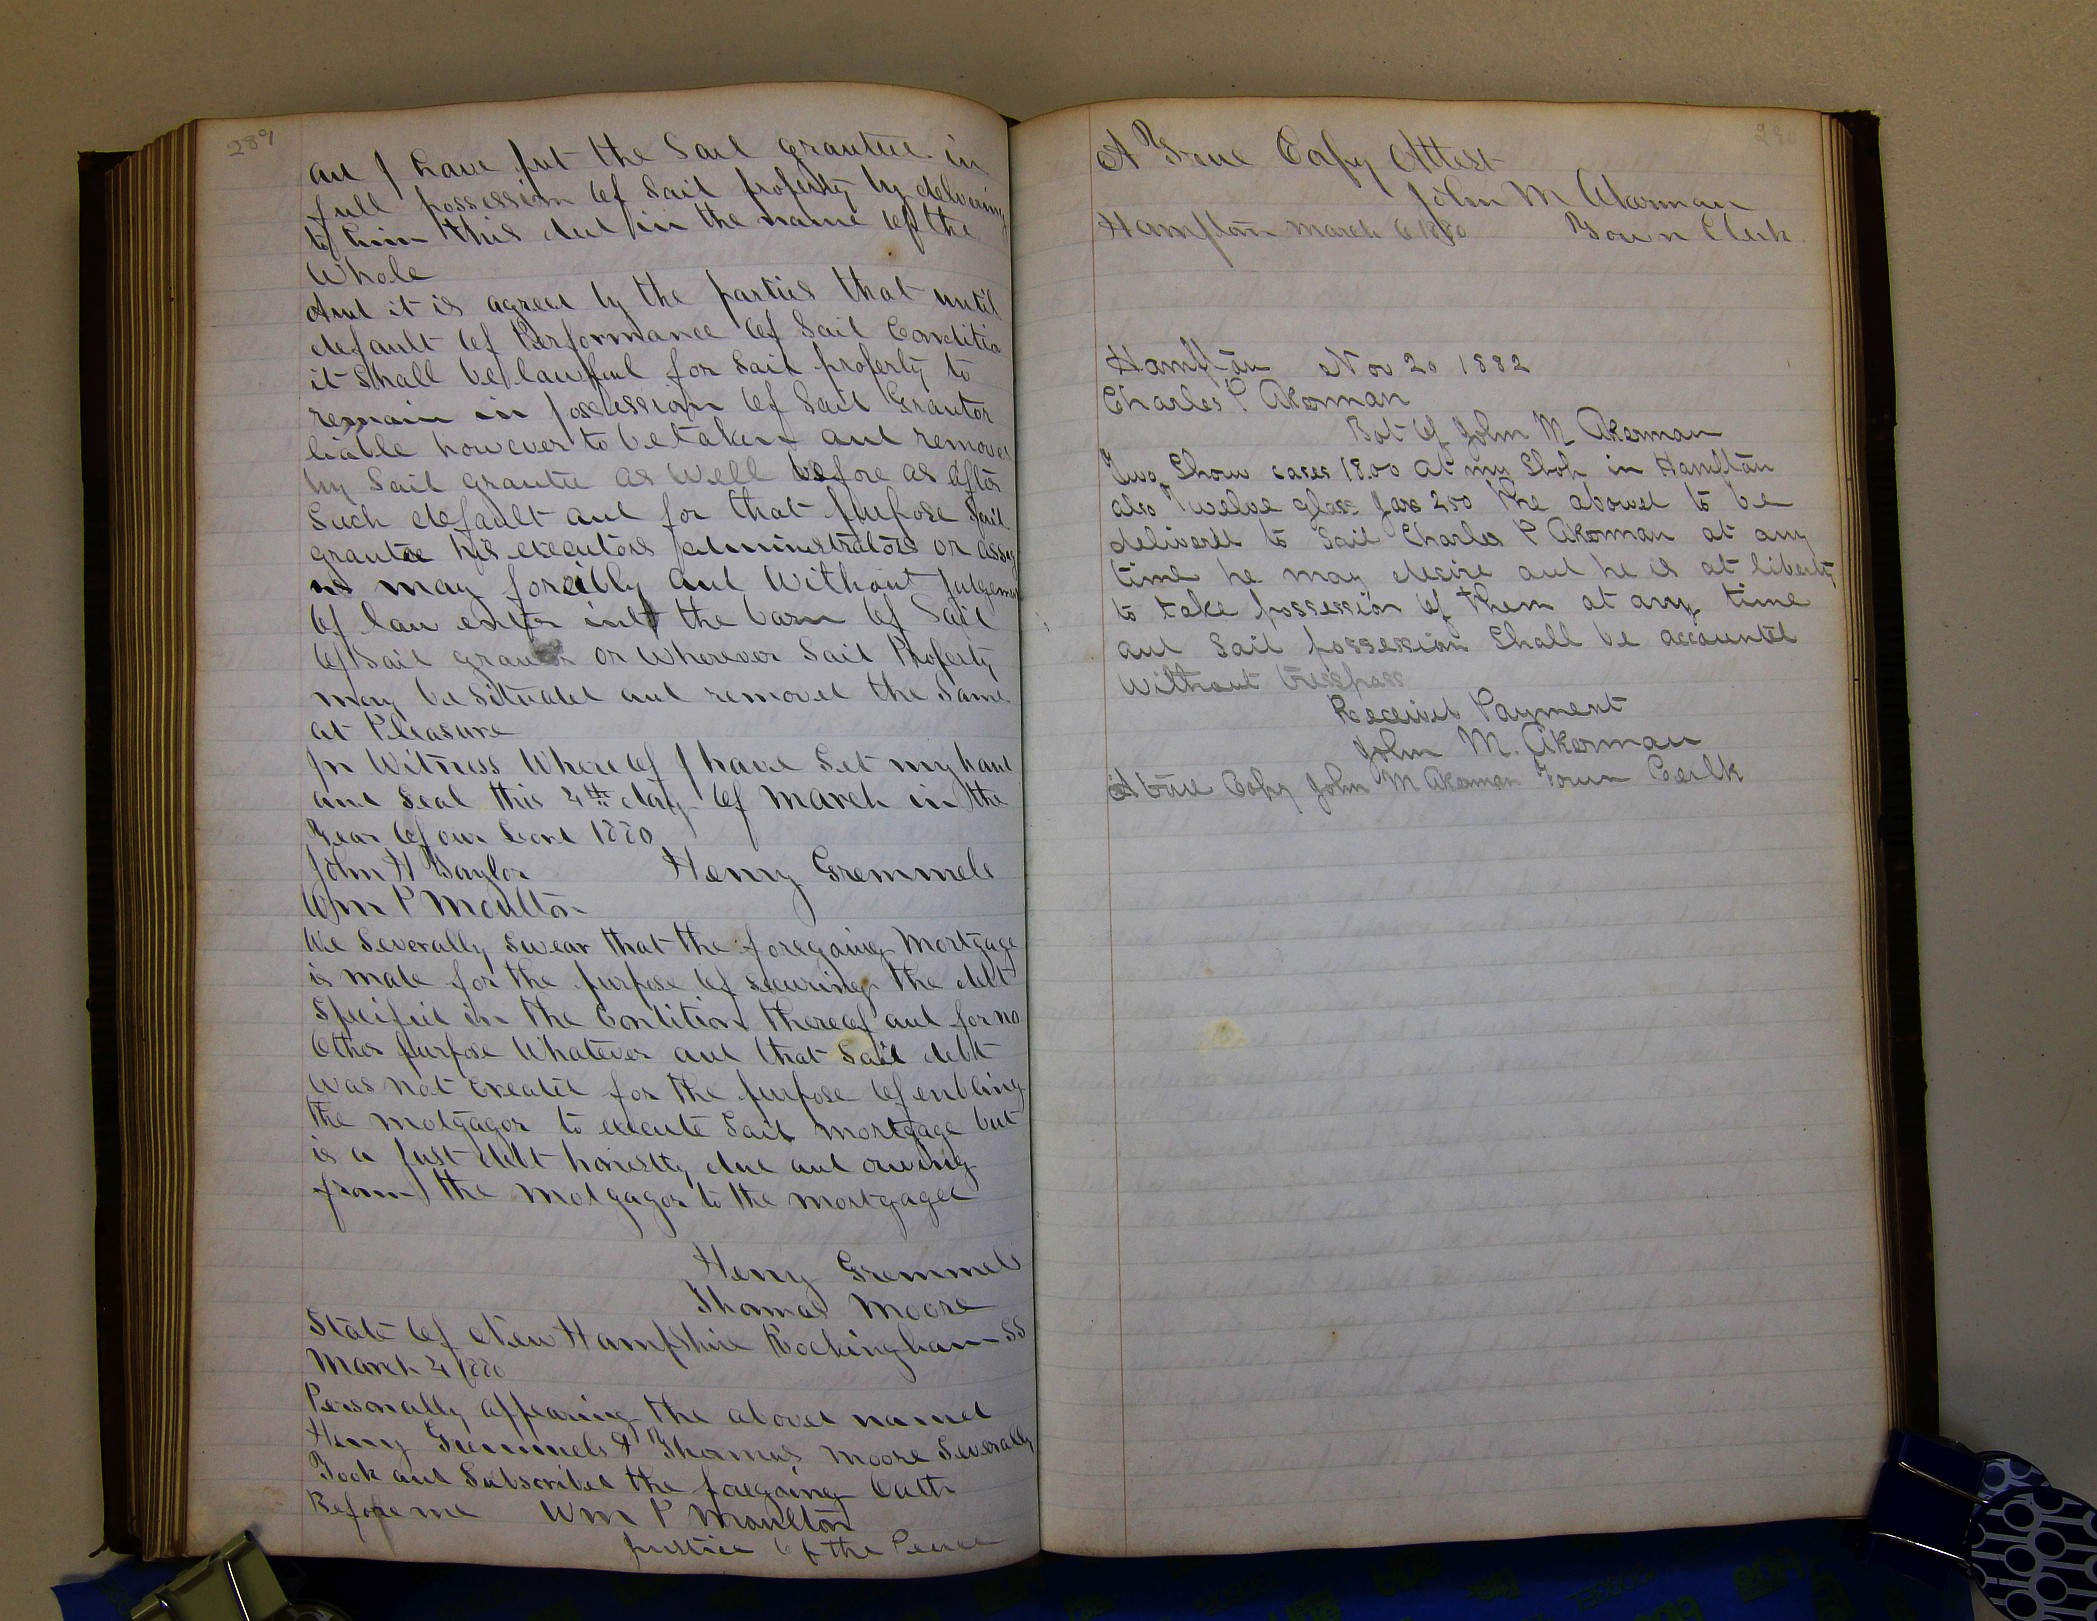 289
and I have put the Said grantee in
full possession of Said property by delivering
to him this deed in the name of the
Whole
And it is agreed by the parties that until
default of Performance of Said Conditio
it Shall be lawful for Said property to
remain in possession of Said Grantor
liable however to be taken and removed
by Said grantee as Well before as after
Such default and for that purpose Said
grantee his executors administrators or assig
ns may forcibly and Without Judgement
of law enter into the barn of Said
of Said grantor or Wherever Said Property
may be Situated and removed the Same
at Pleasure
In Witness Whereof I have Set my hand
and Seal this 4th day of March in the
Year of our Lord 1880
John H Taylor Henry Gremmels
Wm P Moulton
We Severally Swear that the foregoing Mortgage
is made for the purpose of securing the debt
Specified in the Condition thereof and for no
Other purpose Whatever and that Said debt
was not Created for the purpose of enbling
the motgagor to execute Said mortgage but
is a Just debt honestly due and owing
from the motgagor to the mortgagee
Henry Gremmels
Thomas Moore
State of New Hampshire Rockingham SS
March 4 1880
Personally appearing the aboved named
Henry Gremmels & Thomas Moore Severally
Took and Subscribed the foregoing Oath
Before me Wm P Moulton
Justice of the Peace
290
A True Copy Attest
John M Akerman
Hampton March 6 1880 Town Clerk
Hampton Nov 20 1882
Charles P Akerman
Bot of John M Akerman
Two Show cases 18.00 at my Shop in Hampton
also Twelve glass Jars 250 The aboved to be
delivered to Said Charles P Akerman at any
time he may desire and he is at liberty
to take possession of them at any time
and Said possession Shall be accounted
Without tresspass
Received Payment
John M. Akerman
A true Copy John M Akerman Town Cerlk